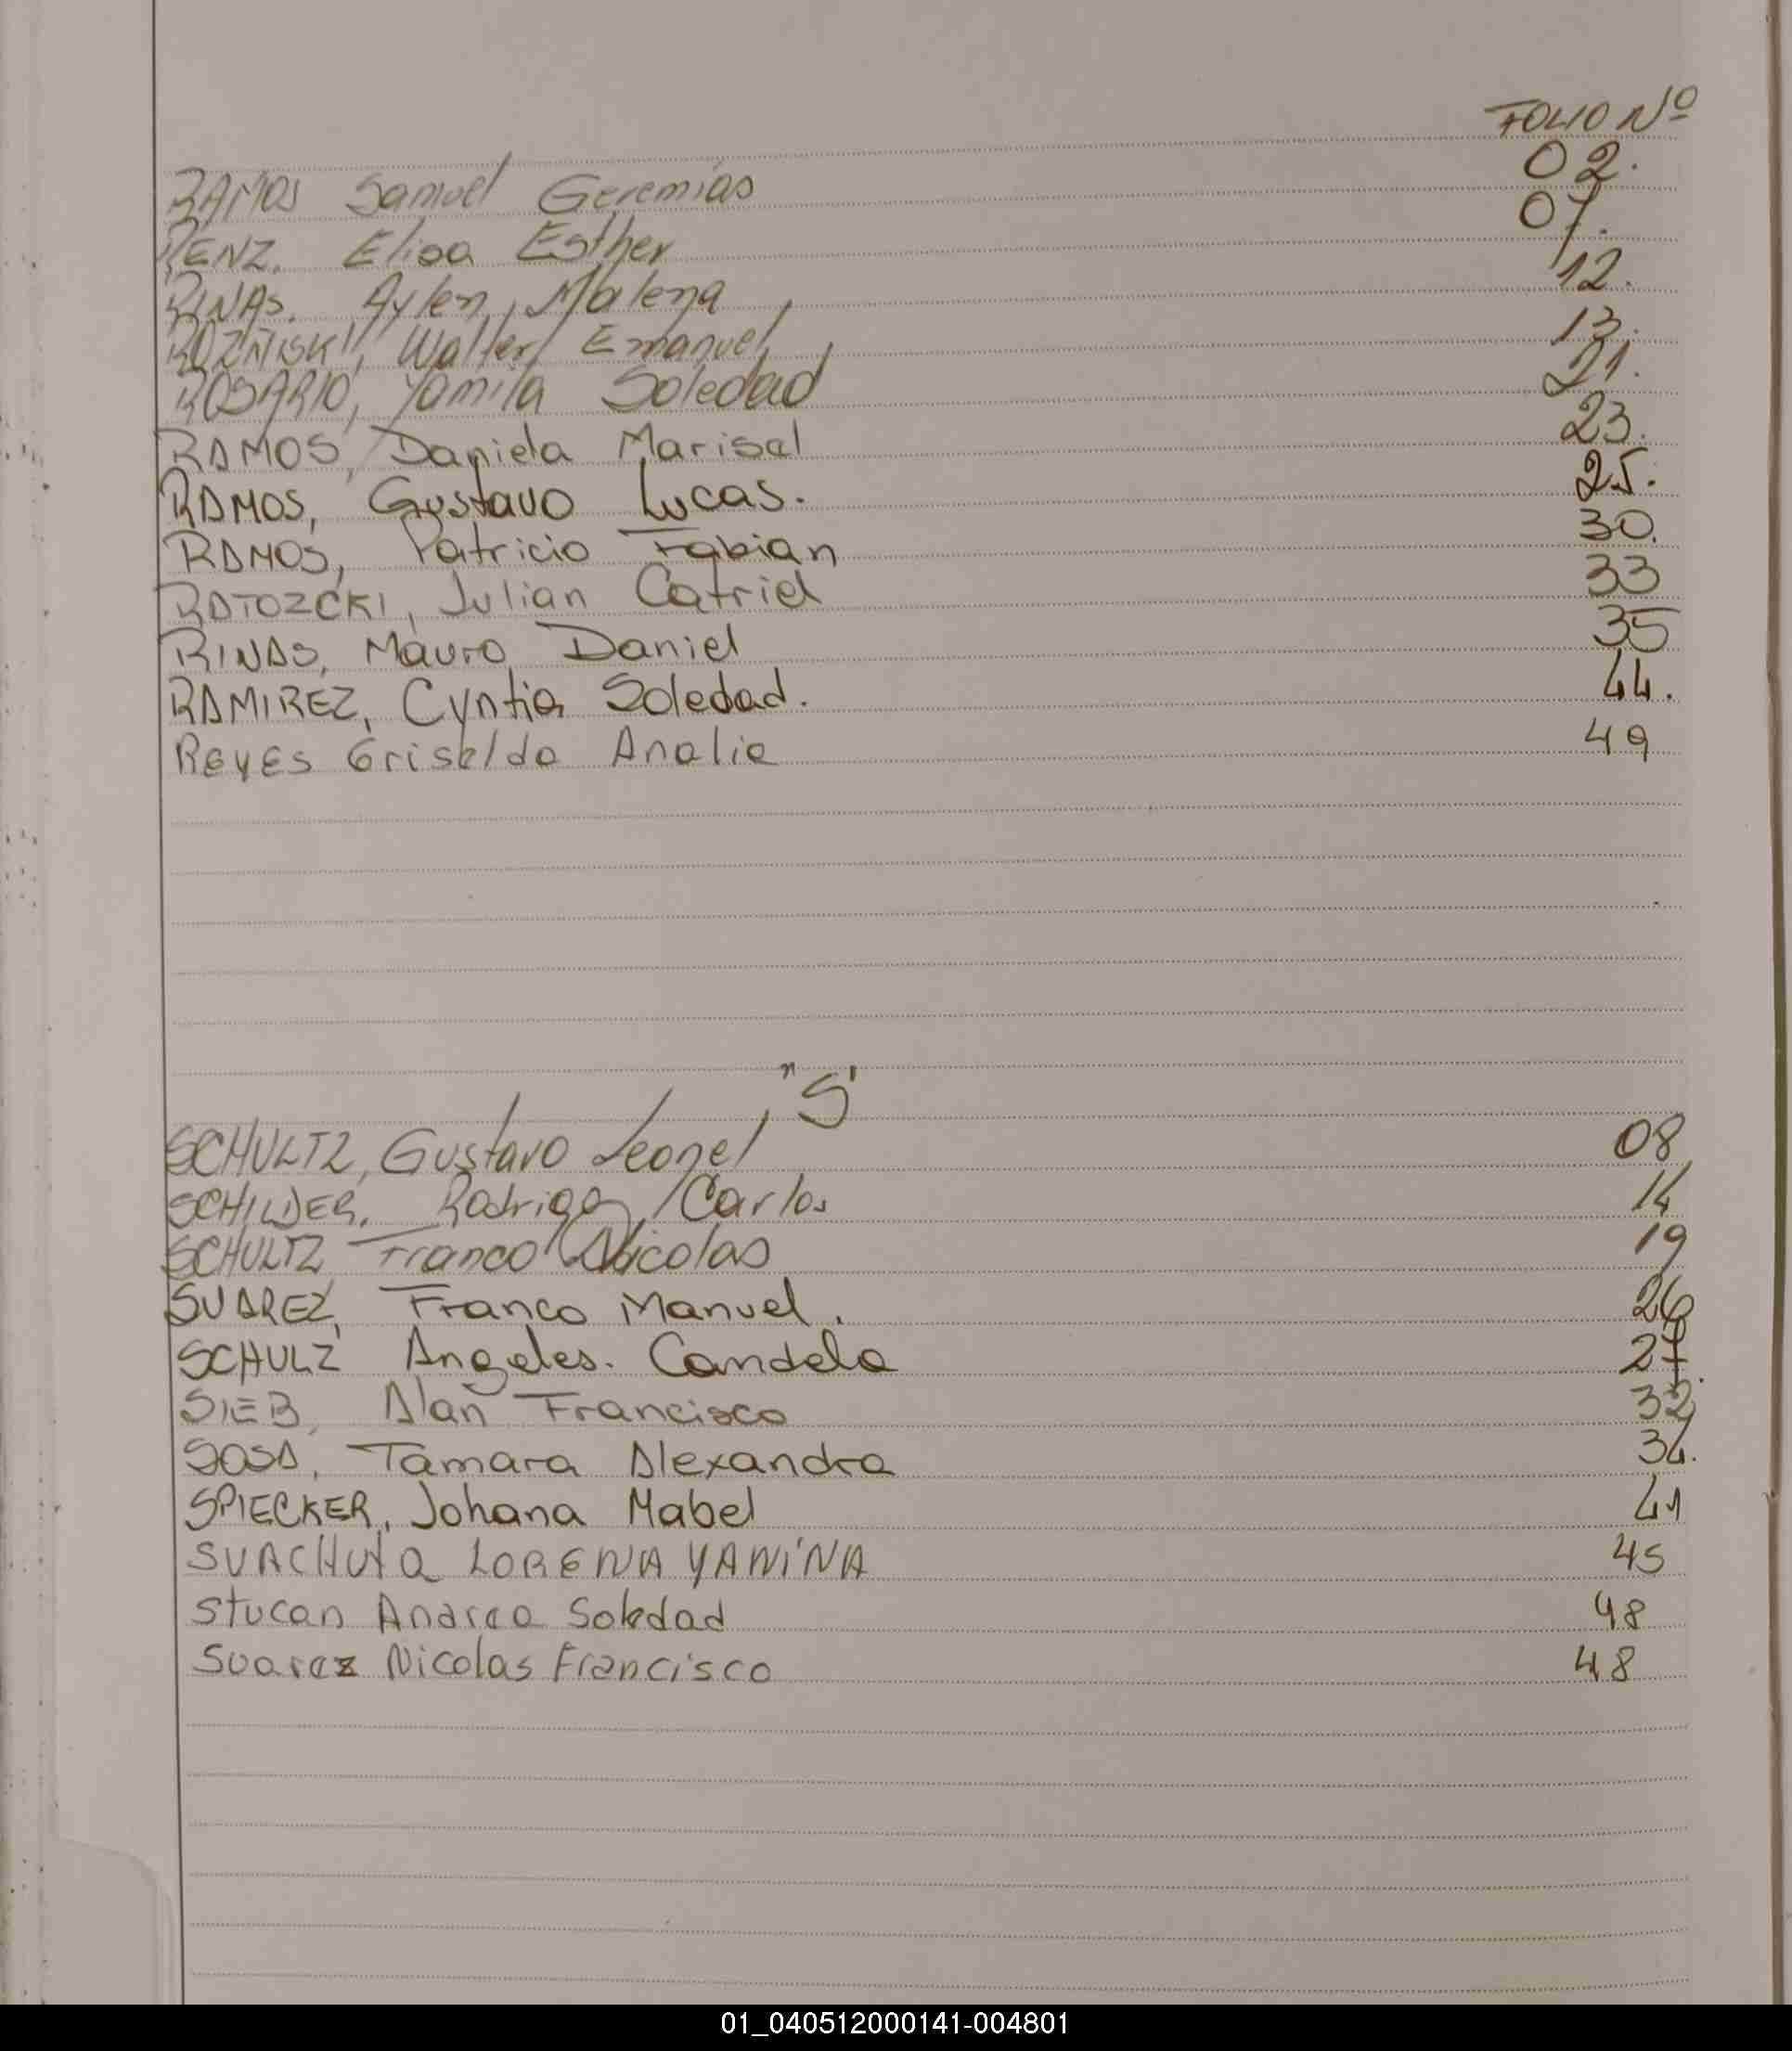 FOLIO Nº
RAMOS Samuel Geremias 02.
RENZ, Elisa Esther 07.
RINAS, Aylen, Malena 12.
ROZNISKI, Walter Emanuel, 13.
ROSARIO, Yamila Soledad 21.
RAMOS, Daniela Marisel 23.
RAMOS, Gustavo Lucas. 25.
RAMOS, Patricio Fabian 30.
RATOZCKI, Julian Catriel 33
RINAS, Mauro Daniel 35
RAMIREZ, Cyntia Soledad. 44.
REYES Griselda Analia 49
"S"
SCHULTZ, Gustavo Leonel 08
SCHILDER, Rodrigo Carlos 14
SCHULTZ Franco Nicolas 19
SUAREZ, Franco Manuel. 26
SCHULZ Angeles. Candela 27.
SIEB, Alan Francisco 32
SOSA, Tamara Alexandra 34.
SPIECKER, Johana Mabel 41
SVACHUTA LORENA YANINA 45
Stucan Andrea Soledad 48
Suarez Nicolas Francisco 48
01_040512000141-004801